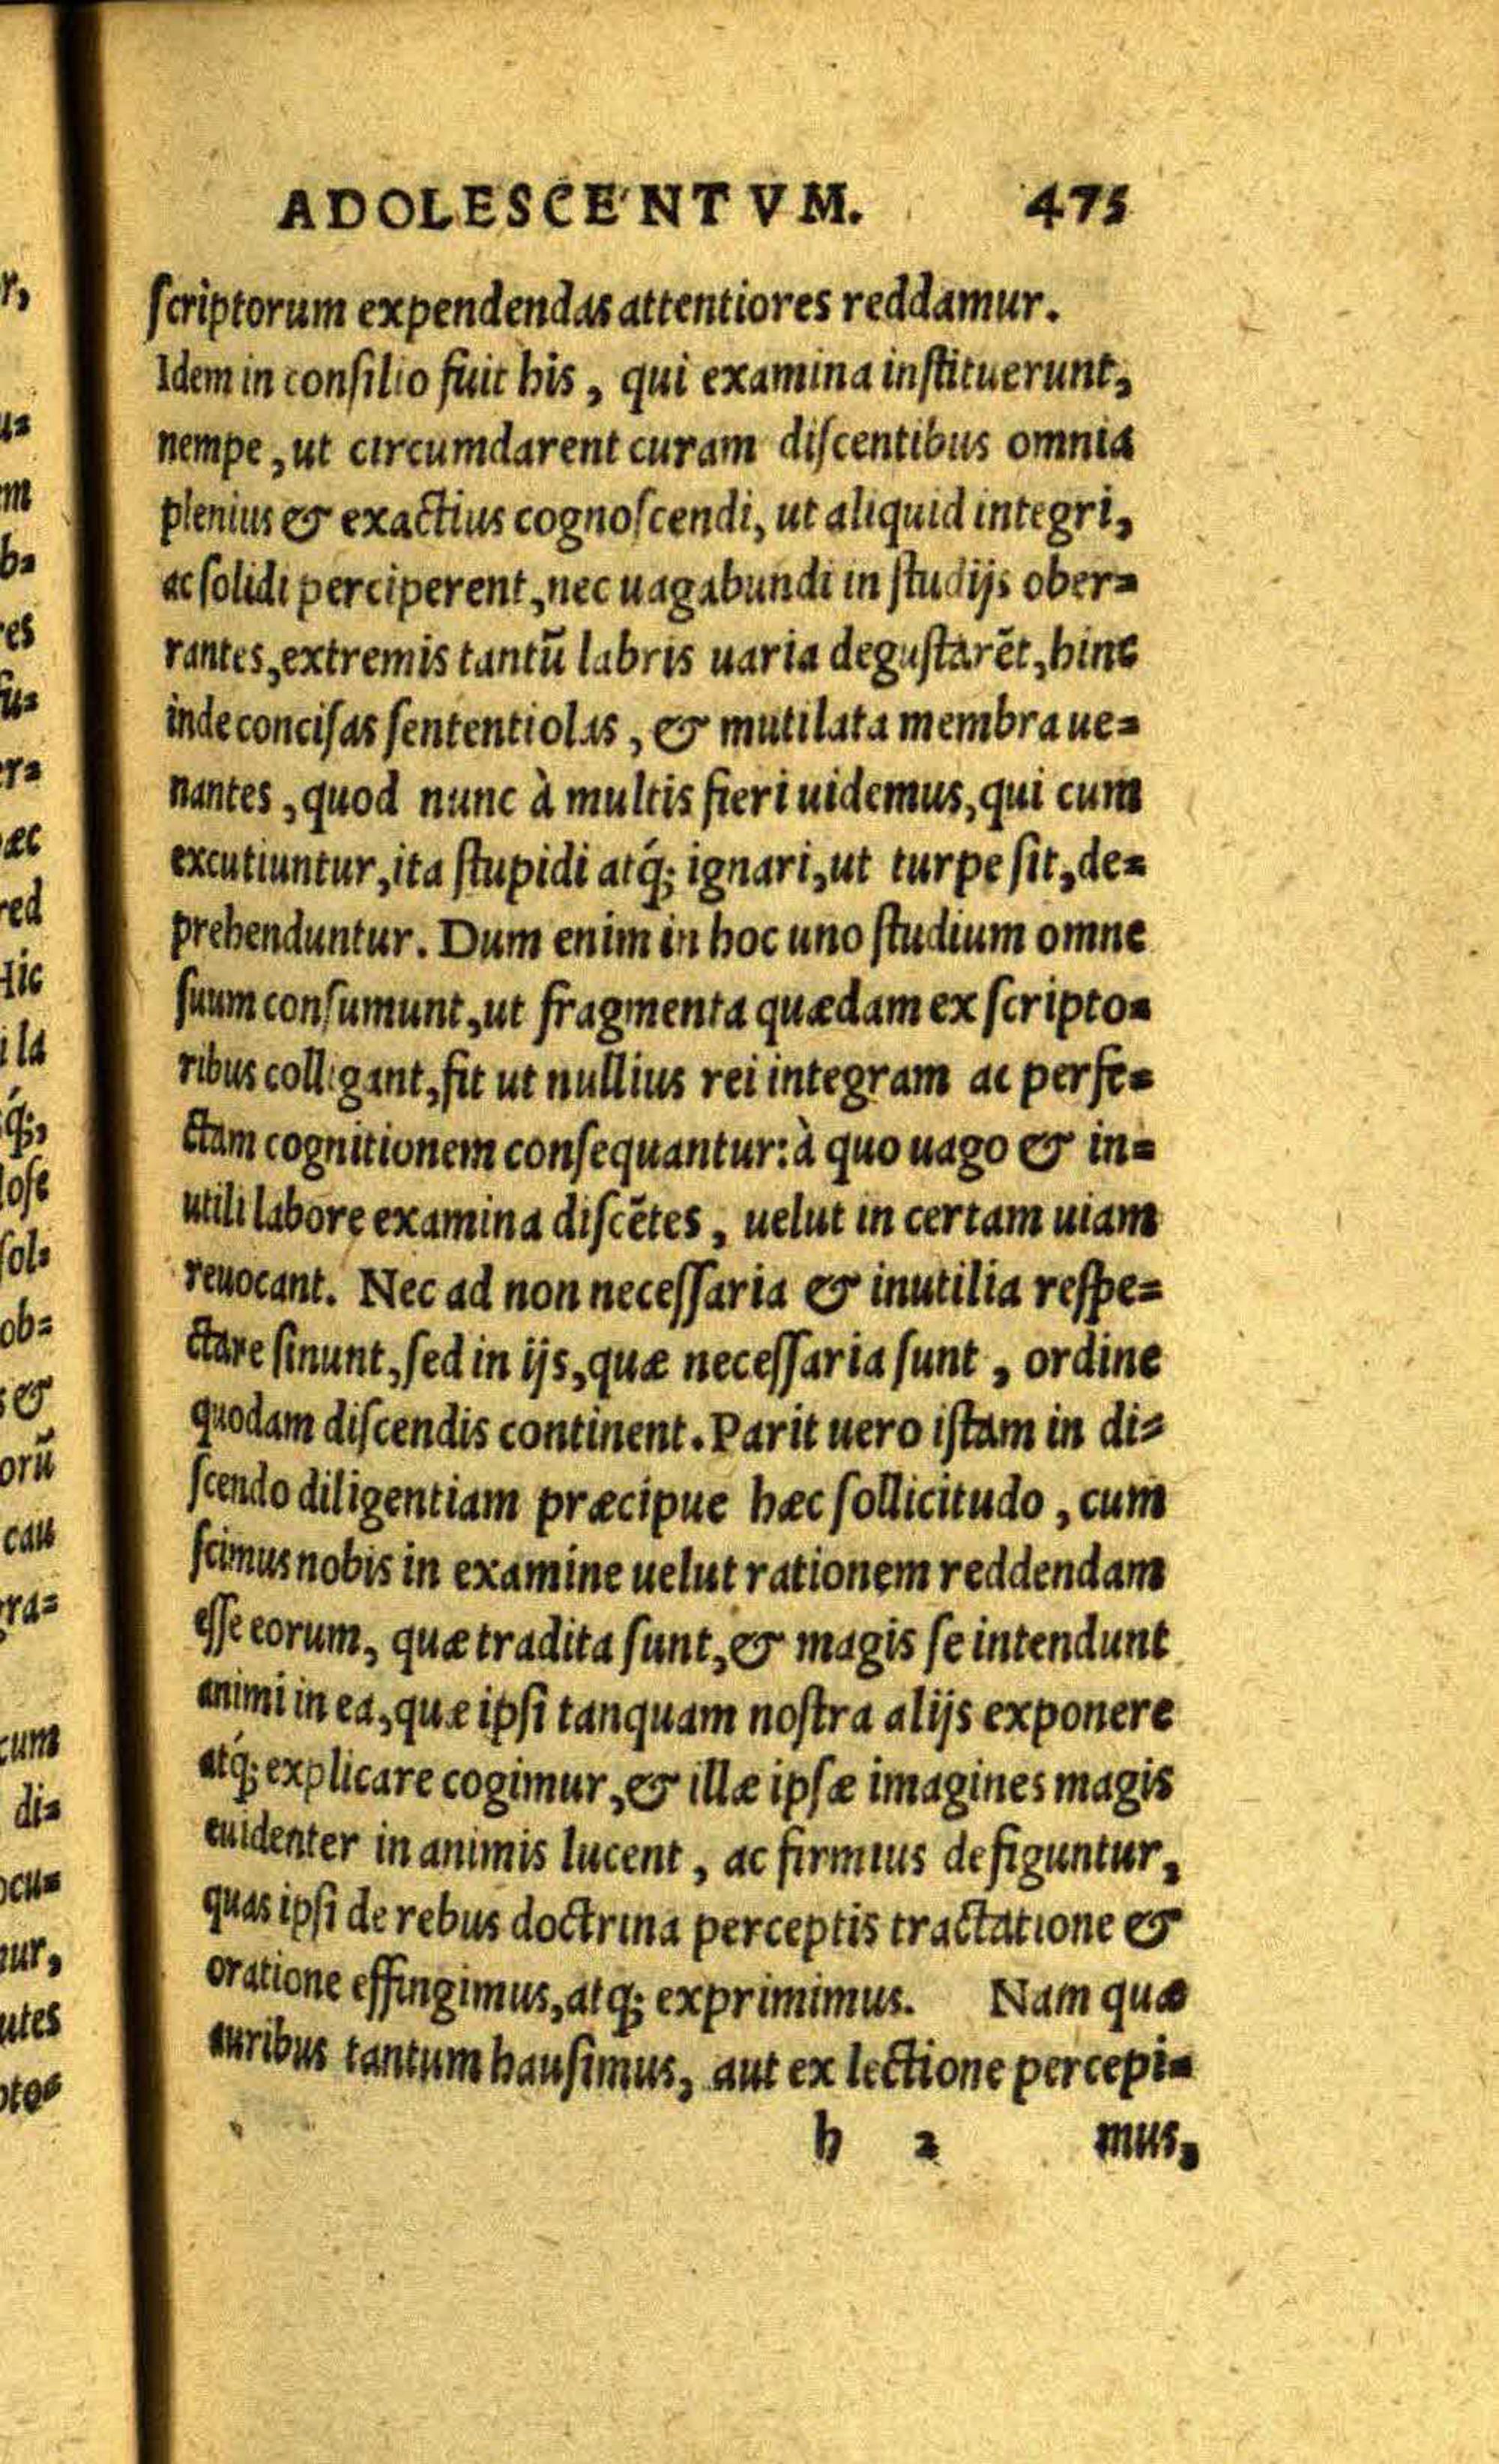 ADOLESCENTVM. 475
ſcriptorum expendendas attentiores reddamur.
Idem in conſilio fuit his, qui examina inſtituerunt,
nempe, ut circumdarent curam diſcentibus omnia
plenius & exactius cognoſcendi, ut aliquid integri,
ac ſolidi perciperent, nec uagabundi in ſtudijs ober=
rantes, extremis tantū labris uaria deguſtarēt, hinc
inde conciſas ſententiolas, & mutilata membra ue=
nantes, quod nunc à multis fieri uidemus, qui cum
excutiuntur, ita ſtupidi atq́; ignari, ut turpe ſit, de=
prehenduntur. Dum enim in hoc uno ſtudium omne
ſuum conſumunt, ut fragmenta quædam ex ſcripto=
ribus colligant, fit ut nullius rei integram ac perfe=
ctam cognitionem conſequantur: à quo uago & in=
utili labore examina diſcētes, uelut in certam uiam
reuocant. Nec ad non neceſſaria & inutilia reſpe=
ctare ſinunt, ſed in ijs, quæ neceſſaria ſunt, ordine
quodam diſcendis continent. Parit uero iſtam in di=
ſcendo diligentiam præcipue hæc ſollicitudo, cum
ſcimus nobis in examine uelut rationem reddendam
eſſe eorum, quæ tradita ſunt, & magis ſe intendunt
animi in ea, quæ ipſi tanquam noſtra alijs exponere
atq́; explicare cogimur, & illæ ipſæ imagines magis
euidenter in animis lucent, ac firmius defiguntur,
quas ipſi de rebus doctrina perceptis tractatione &
oratione effingimus, atq́; exprimimus. Nam quæ
auribus tantum hauſimus, aut ex lectione percepi=
h 2 mus,